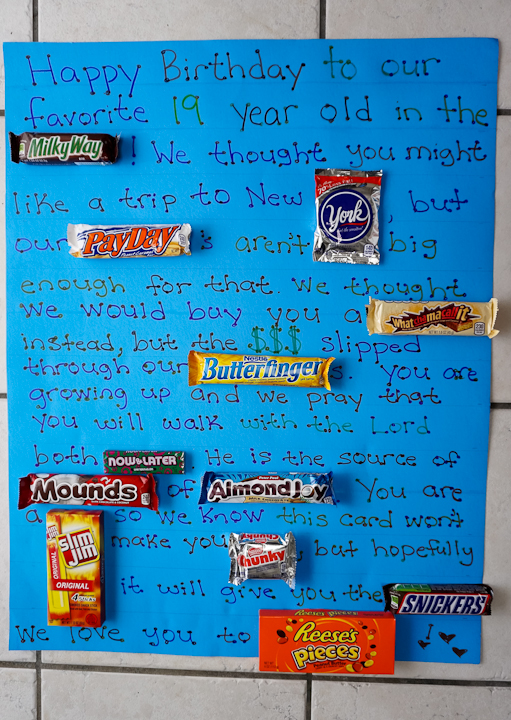 Happy Birthday to our
favorite 19 year old in the
Milky Way ! We thought you might
like a trip to New York , but
our PayDay 's aren't big
enough for that. We thought
we would buy you a Whatchamacallit
instead, but the $$$ slipped
through our Nestle Butterfinger s. You are
growing up and we pray that
you will walk with the Lord
both NOW&LATER . He is the source of
Mounds of Almond Joy . You are
a Slim Jim ORIGINAL so we know this card won't
make you Chunky , but hopefully
it will give you the SNICKERS
We love you to Reese's Pieces !